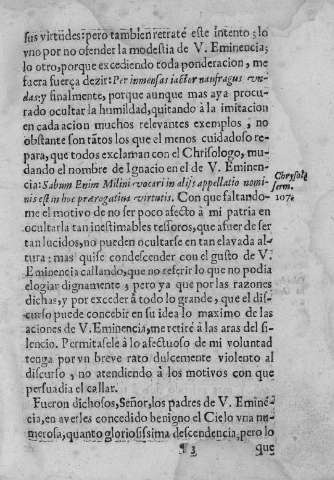 sus virtudes: pero tambien retratè este intento; lo
vno por no ofender la modestia de V. Eminencia;
lo otro, porque excediendo toda ponderacion, me
fuera fuerça dezir: Per inmensas iactor naufragus vn-
das: y finalmente, porque aunque mas aya procu-
rado ocultar la humildad, quitando à la imitacion
en cada acion muchos relevantes exemplos, no
obstante son tãtos los que el menos cuidadoso re-
para, que todos exclaman con el Chrisologo, mu-
dando el nombre de Ignacio en el de V. Eminen-
cia: Sabum Enim Milini vocari in alijs appellatio nomi-
nis est in hoc prærogatiua virtutis. Con que faltando-
me el motivo de no ser poco afecto à mi patria en
ocultarla tan inestimables tesoros, que afuer de ser
tan lucidos, no pueden ocultarse en tan elavada al-
tura: mas quise condescender con el gusto de V.
Eminencia callando, que no referir lo que no podia
elogiar dignamente, pero ya que por las razones
dichas, y por exceder à todo lo grande, que el dis-
curso puede concebir en su idea lo maximo de las
aciones de V. Eminencia, me retirè à las aras del si-
lencio. Permitasele à lo afectuoso de mi voluntad
tenga por vn breve rato dulcemente violento al
discurso, no atendiendo à los motivos con que
persuadia el callar.
Fueron dichosos, Señor, los padres de V. Eminẽ-
cia, en averles concedido benigno el Cielo vna nu-
merosa, quanto gloriosissima descendencia, pero lo
¶ 3 que
Chrysol.
serm.
107.